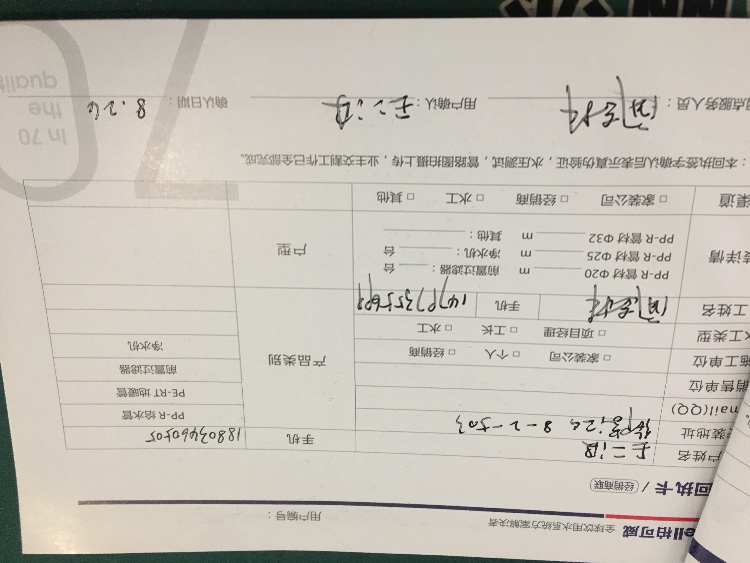 ell 柏可威 全球饮用水系统方案解决者 用户编号：
回执卡 / 经销商联
户姓名 王二海 手机 18803460505
装地址 8-2-503
mail(QQ)
销售单位
施工单位 □ 家装公司 □ 个人 □ 经销商
工类型 □ 项目经理 □ 工长 □ 水工
工姓名 手机
产品类别
PP-R 给水管
PE-RT 地暖管
前置过滤器
净水机
装详情
PP-R 管材 Φ20 m 前置过滤器： 台
PP-R 管材 Φ25 m 净水机： 台
PP-R 管材 Φ32 m 其他：
户型
渠道 □ 家装公司 □ 经销商 □ 水工 □ 其他
：本回执签字确认后表示真伪验证，水压测试，管路图拍照上传，业主交割工作已全部完成。
网点服务人员： 用户确认：王二海 确认日期：8.26
In 70
the
qualit